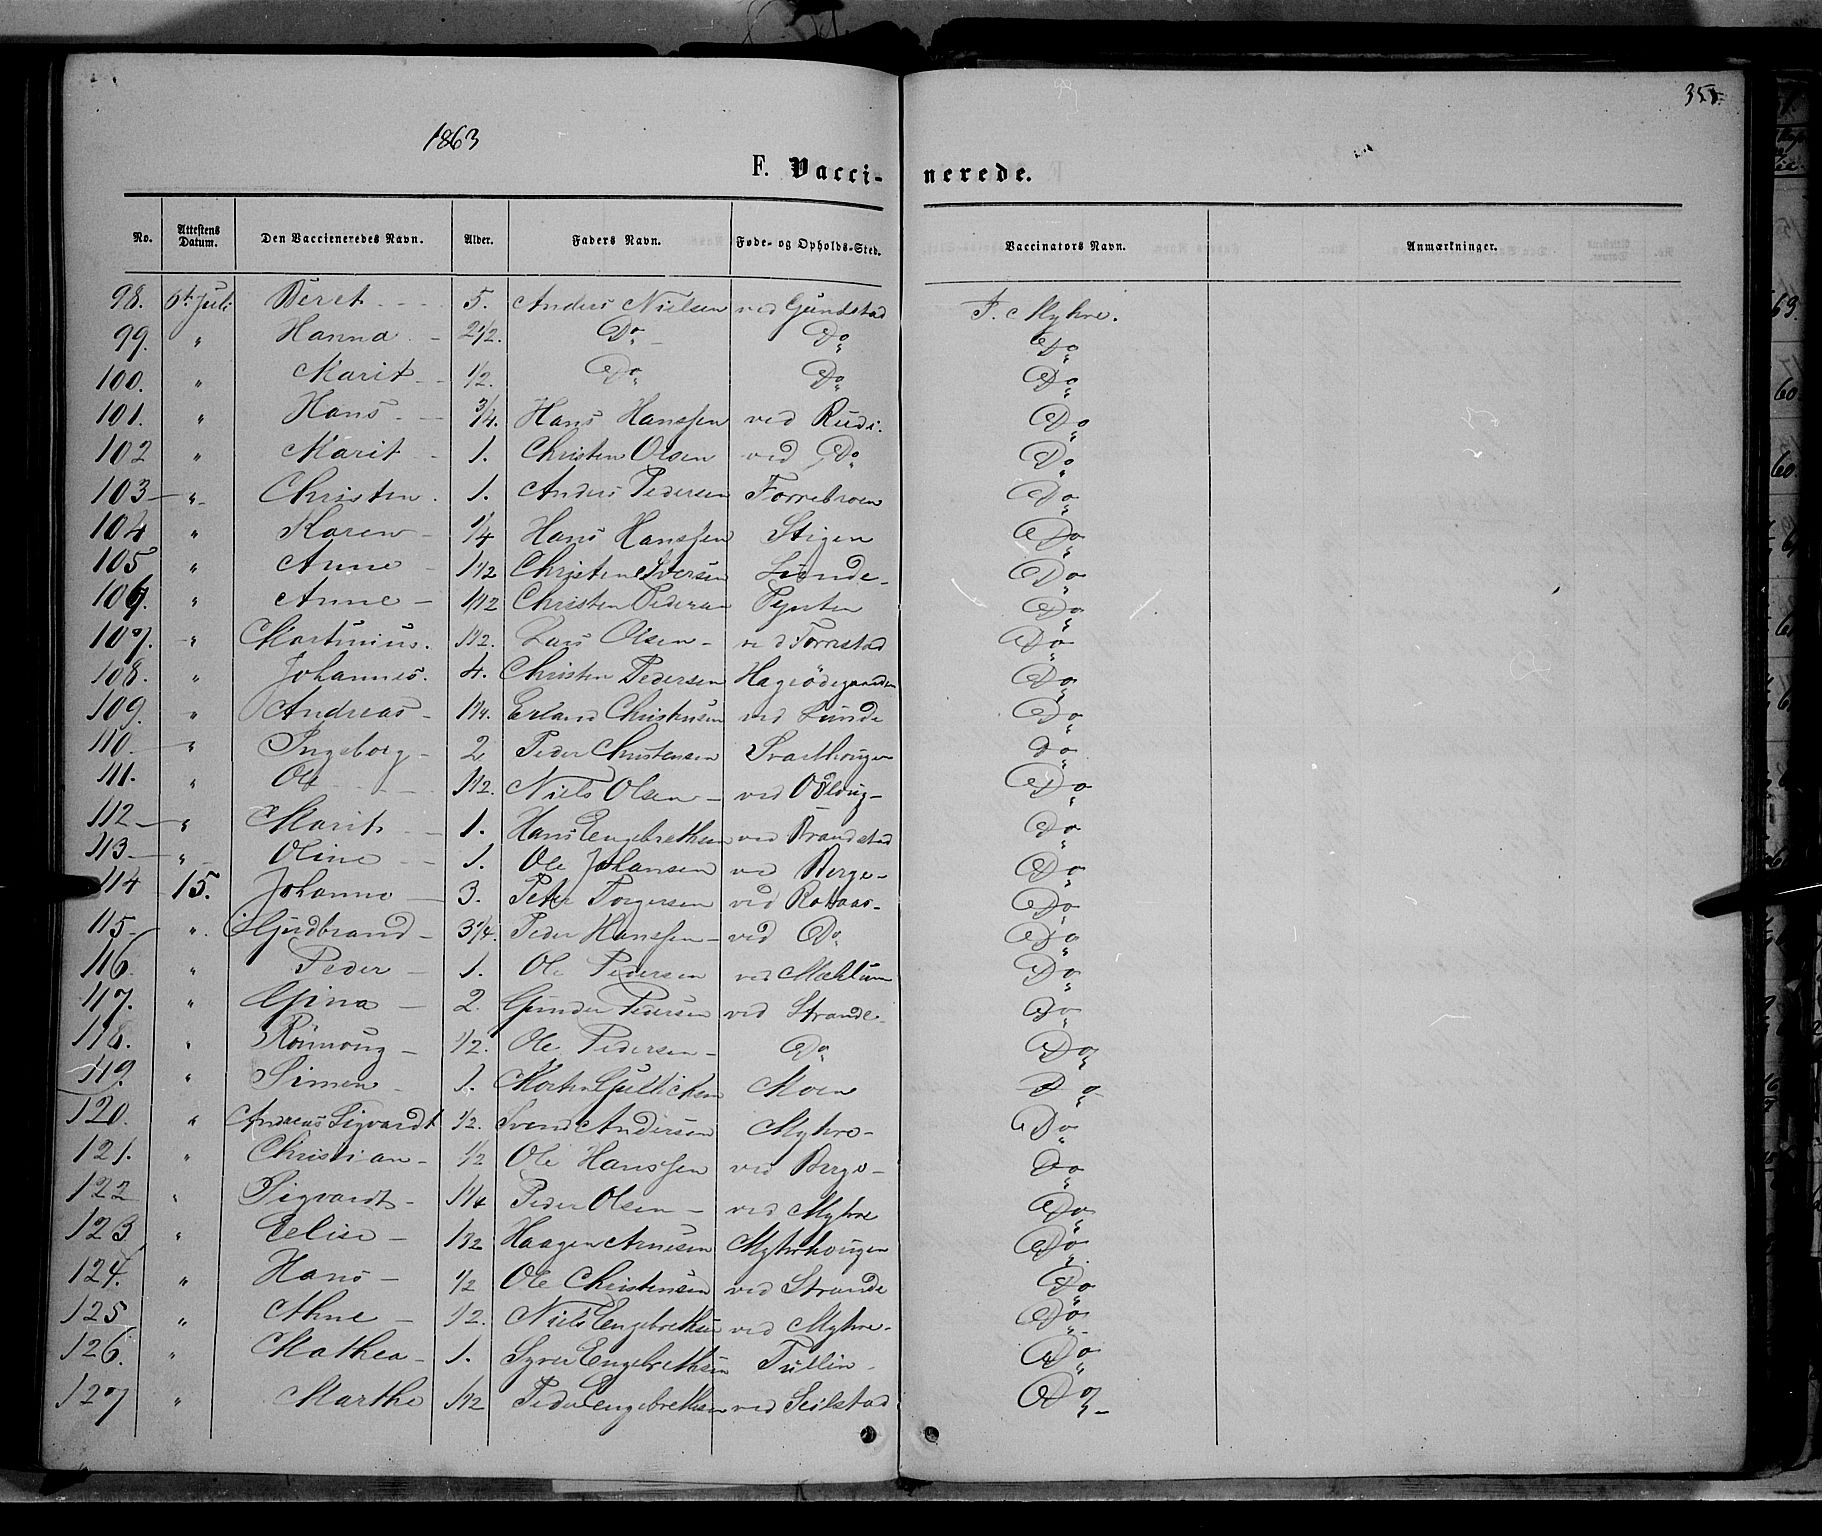 355.
1863
F. Vaccinerede.
No. Attestens Datum. Den Vaccieneredes Navn. Alder. Faders Navn. Føde- og Opholds-Sted. Vaccinators Navn. Anmærkninger.
98. 6te Juli Beret 5. Anders Nielsen ved Gundstad F. Myhre.
99. " Hanna 2 1/2. Do Do Do
100. " Marit 1/2. Do Do Do
101. " Hans 3/4. Hans Hanssen ved Rudi. Do
102 " Marit 1. Christen Olsen ved Do Do
103 " Christen. 1. Anders Pedersen Forrebroen Do
104 " Karen 1/4 Hans Hanssen Stigen Do
105 " Anne 1 1/2 Christen Iversen Lunde Do
106. " Anne 1 1/2 Christen Pedersen Pynten Do
107. " Martinius. 1 1/2. Lars Olsen ved Forrestad Do
108. " Johannes. 4. Christen Pedersen Hageödegaarden Do
109. " Andreas 1 1/4. Erland Christensen ved Lunde Do
110. " Ingeborg 2 Peder Christensen Svarthougen Do
111. " Ole 1 1/2. Niels Olsen ved Do
112 " Marit 1. Hans Engebrethsen ved Brandstad Do
113 " Oline 1. Ole Johansen ved Berge Do
114 15. Johanne 3. Peter Torgersen ved Do
115 " Gudbrand 3 1/4. Peder Hanssen ved Do Do
116. " Peder 1. Ole Pedersen ved Mæhlum Do
117. " Gina 2. Gunder Pedersen ved Strande Do
118. " Rönnoug 1/2. Ole Pedersen Do Do
119. " Simen 1. Morten Gullicksen Moen Do
120. " Andreas Sigvardt 1/2. Svend Andersen Myhre Do
121. " Christian 1/2 Ole Hanssen ved Berge Do
122 " Sigvardt 1 1/4 Peder Olsen ved Myhre Do
123 " Eelise 1 1/2 Haagen Arnesen Myhrhougen Do
124. " Hans 1/2 Ole Christensen ved Strande Do
125 " Ahne 1/2. Niels Engebrethsen ved Myhre Do
126. " Mathea 1. Syver Engebrethsen Tullin Do
127 " Marthe 1 1/2 Peder Engebrethsen ved Seilstad Do